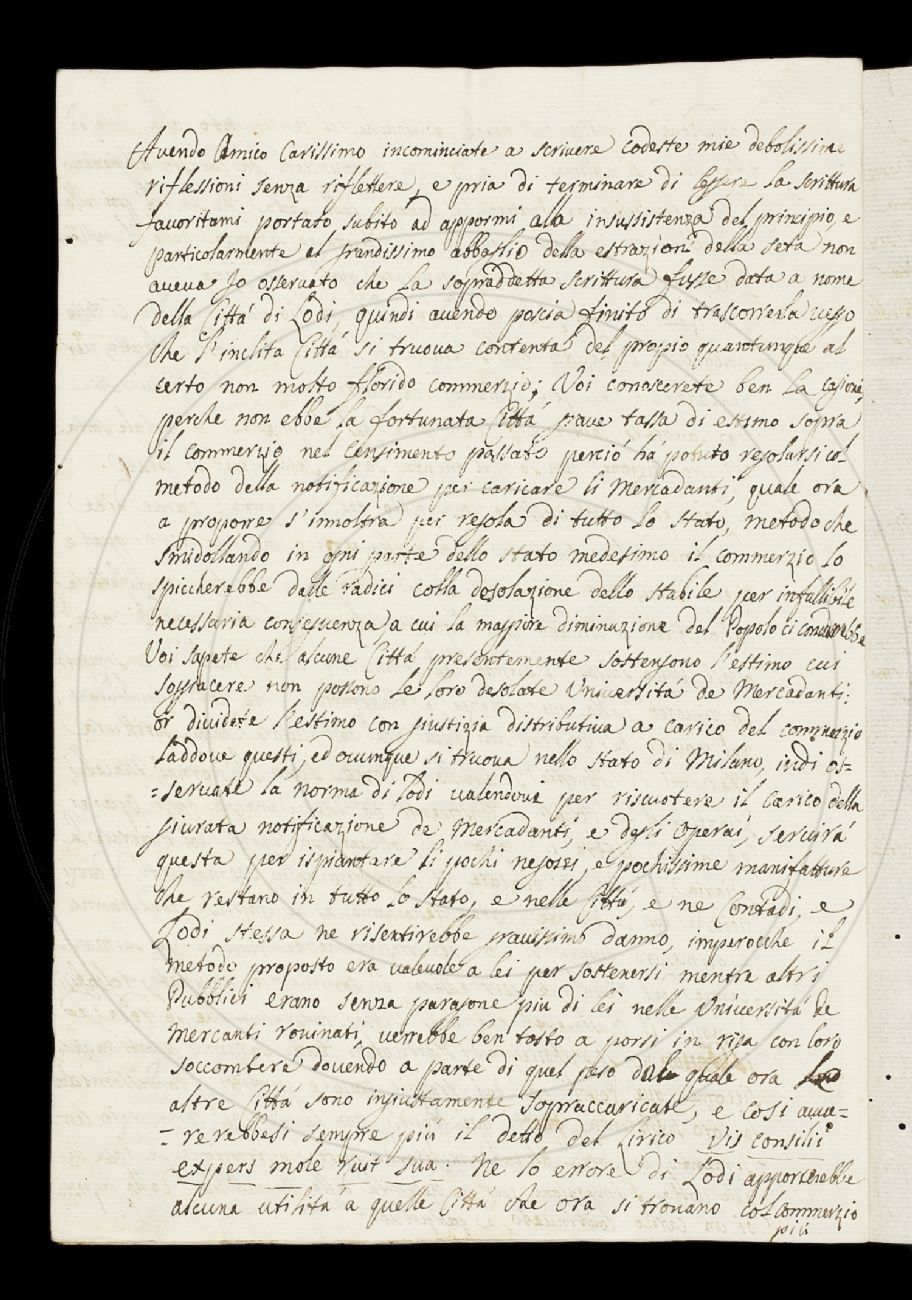 Avendo Amico Carissimo incominciate a scrivere codeste mie debolissime
riflessioni senza riflettere, e pria di terminare di leggere la scrittura
favoritami portato subito ad appormi alla insussistenza del principio, e
particolarmente al grandissimo abbaglio della estrazione della seta non
aveva Jo osservato che la sopraddetta scrittura fusse data a nome
della Cittá di Lodi quindi avendo poscia finito di trascorrerla veggo
che l'inclita Cittá si truova contenta del propio quantunque al
certo non molto florido commerzio; Voi conoscerete ben la cagione,
perche non ebbe la fortunata Cittá grave tassa di estimo sopra
il commerzio nel Censimento passato perció há potuto regolarsi col
metodo della notificazione per caricare li Mercadanti, quale ora
a proporre s'innoltra per regola di tutto lo Stato, metodo che
smidollando in ogni parte dello stato medesimo il commerzio lo
spiccherebbe dalle radici colla desolazione dello stabile per infallibile
necessaria conseguenza, a cui la maggiore diminuzione del Popolo ci condurrebbe
Voi sapete che alcune Cittá presentemente sostengono l'estimo cui
soggiacere non possono le loro desolate Universitá de Mercadanti:
or dividete l'estimo con giustizia distributiva a carico del commerzio
laddove questi, ed ovunque si truova nello Stato di Milano, indi os=
=servate la norma di Lodi valendovi per riscuotere il carico della
giurata notificazione de Mercadanti, e degli Operai, servirá
questa per ispiantare li pochi negozi, e pochissime manifatture
che restano in tutto lo Stato, e nelle Cittá, e ne Contadi, e
Lodi stessa ne risentirebbe gravissimo danno, imperocche il
metodo proposto era valevole a lei per sostenersi mentre altri
Pubblici erano senza paragone piu di lei nelle Universitá de
Mercanti rovinati, verrebbe ben tosto a porsi in riga con loro
soccombere dovendo a parte di quel peso dal quale ora
altre Cittá sono ingiustamente sopraccaricate, e cosi avve=
=rerebbesi sempre piú il detto del Lirico Vis consilii
expers mole ruit sua. Ne lo errore di Lodi apporterebbe
alcuna utilitá a quelle Cittá che ora si trovano col commerzio
piú